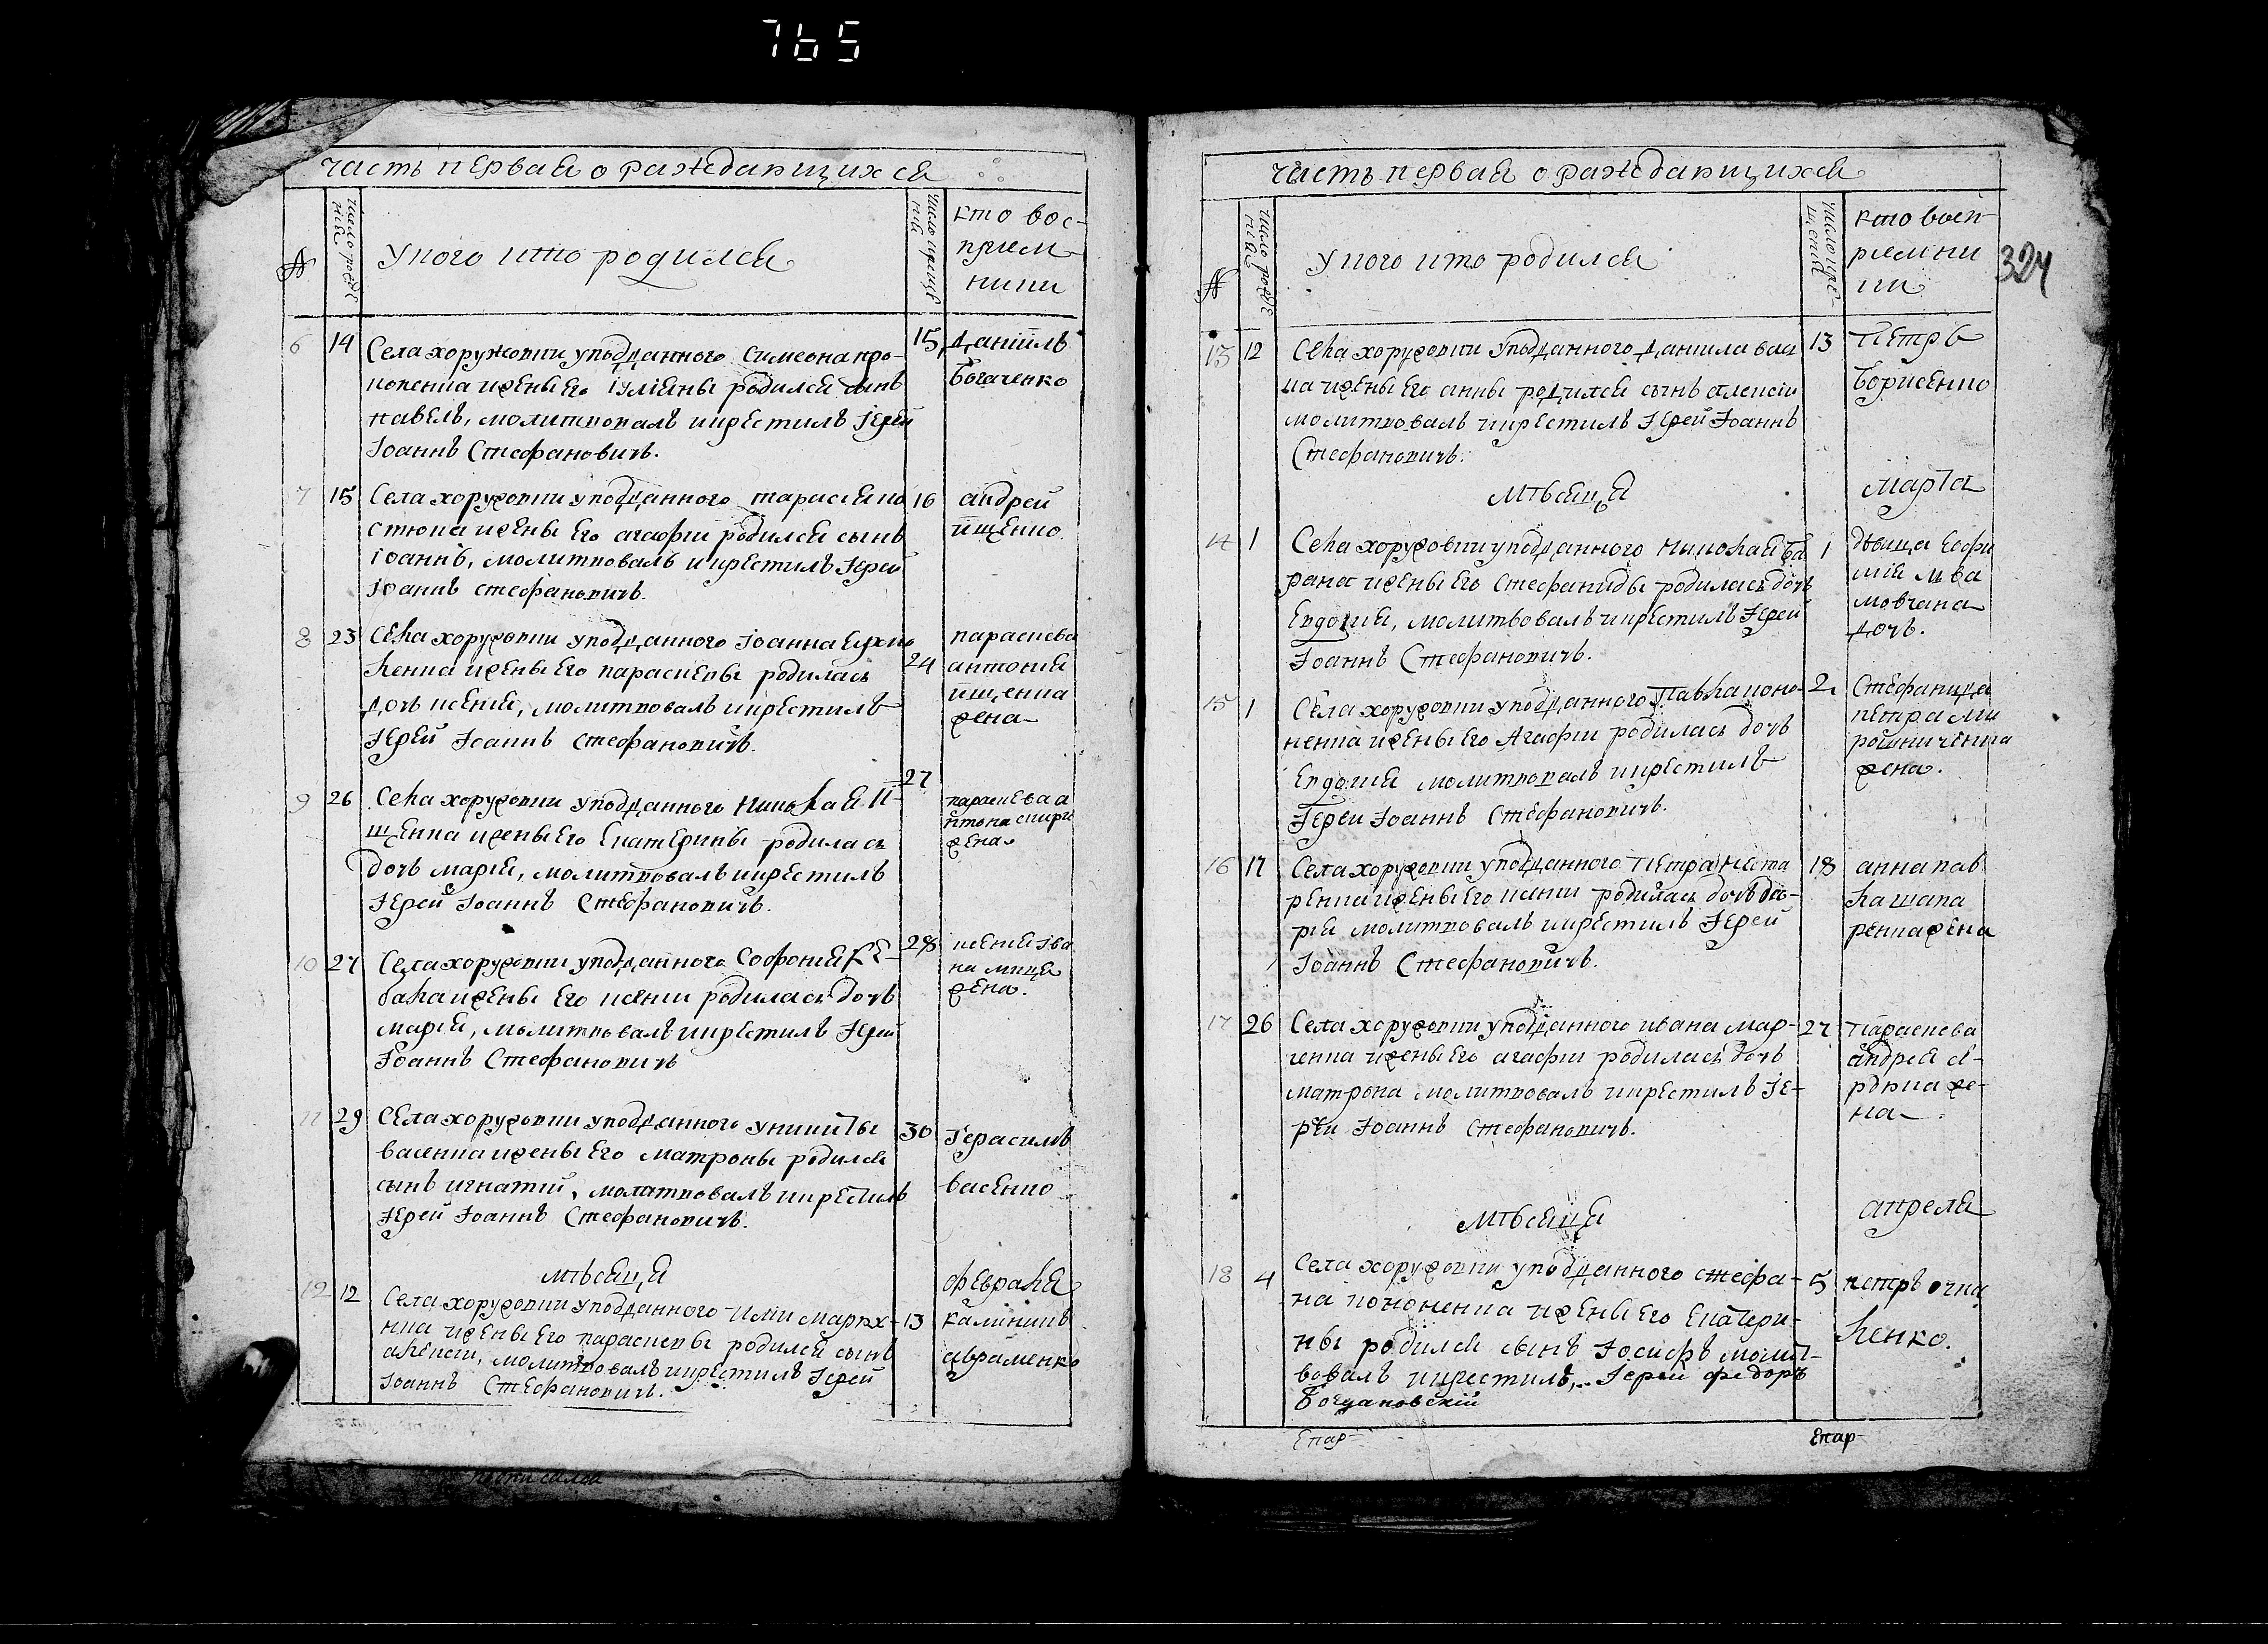 765
часть первая о раждающихся
№
число рожде
нія
У кого кто родился
число креще
нія
кто вос-
прием
ники
6 14 Села хоружовки уподданного Симеона про-
копенка и жены его іуліяны родился сынъ
павелъ, молитвовалъ и крестилъ Іерей
Іоаннъ Стефановичъ.
15 даніилъ
Богаченко
7 15 Села хоружовки уподданного тарасия ко
стюка и жены Его агафии родился сынъ
іоаннъ, молитвовалъ и крестилъ Іерей
Іоаннъ стефановичъ.
16 андрей
ищенко
8 23 Села хоружовки уподданного Іоанна
ленка и жены Его параскевы родилась
дочь ксения, молитвовалъ и крестилъ
Іерей Іоаннъ стефановичъ.
24 параскева
антония
ищенка
жена
9 26 Села хоружовки уподданного Николая И-
щенка и жены Его Екатерины родилась
дочь мария, молитвовалъ и крестилъ
Іерей Іоаннъ Стефановичъ.
27 параскева а
нтона
жена
10 27 Села хоружовки уподданного Софрония Ке-
бала и жены Его ксении родилась дочь
мария, молитвовалъ и крестилъ Іерей
Іоаннъ Стефановичъ
28 ксения Ива
на
жена.
11 29 Села хоружовки уподданного у никиты
васенка и жены Его матроны родился
сынъ игнатий, молитвовалъ и крестилъ
Іерей Іоаннъ Стефановичъ.
30 Герасимъ
васенко
мѣсяца февраля
12 12 Села хоружовки уподданного илии
нка и жены Его параскевы родился сынъ
алексий, молитвовалъ и крестилъ Іерей
Іоаннъ Стефановичъ.
13 калиникъ
авраменко
часть первая о раждающихся
324
№
число рожде
нія
У кого кто родился
число кре-
щения
кто воспр
риемни
ки
13 12 Села хоружовки Уподданного данила вас
ка и жены его анны родился сынъ алексій
молитвовалъ и крестилъ Іерей Іоаннъ
Стефановичъ.
13 Петръ
Борисенко
мѣсяца марта
14 1 Села хоружовки уподданного Николая Ба
рана и жены Его Стефаниды родилась дочь
Евдокия, молитвовалъ и крестилъ Іерей
Іоаннъ Стефановичъ.
1 дѣвица Еофи
мия льва
мовчана
дочь.
15 1 Села хоружовки уподданного Павла коно-
ненка и жены Его Агафии родилась дочь
Евдокия молитвовалъ и крестилъ
Іерей Іоаннъ Стефановичъ.
2 Стефанида
петра ми
рошниченка
жена.
16 17 Села хоружовки уподданного Петра
ренка и жены Его родилась дочь да-
рия молитвовалъ и крестилъ Іерей
Іоаннъ Стефановичъ.
18 анна пав
ла шапа
ренка жена
17 26 Села хоружовки уподданного ивана мар-
ченка и жены Его агафии родилась дочь
матрона молитвовалъ и крестилъ Іе-
рей Іоаннъ Стефановичъ.
27 Параскева
андрея
же-
на
мѣсяца апреля
18 4 Села хоружовки уподданного стефа-
на кононенка и жены Его Екатери-
ны родился сынъ Іосифъ молит-
вовалъ и крестилъ, Іерей федоръ
Богдановскій
5 петръ
ленко.
Епар-
Епар-